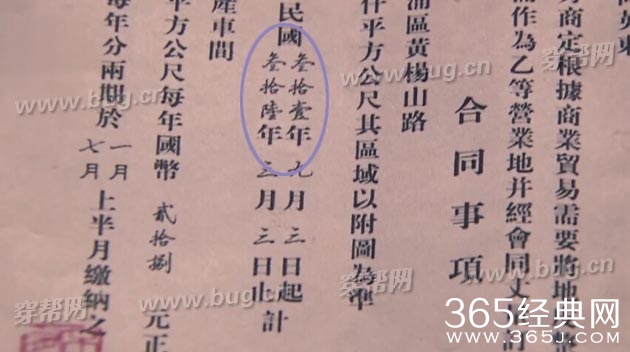 商定根據商業貿易需要將地
作為乙等營業地并經會同丈
合同事項
浦區黃楊山路
仟平方公尺其區域以附圖為準
民國叁拾壹年九月三日起計
叁拾陸年三月三日止計
產車間
平方公尺每年國幣貳拾捌元正
每年分兩期於一月七月上半月繳納之
穿帮网 www.bug.cn
穿帮网 www.bug.cn
穿帮网 www.bug.cn
365经典网
www.365J.com